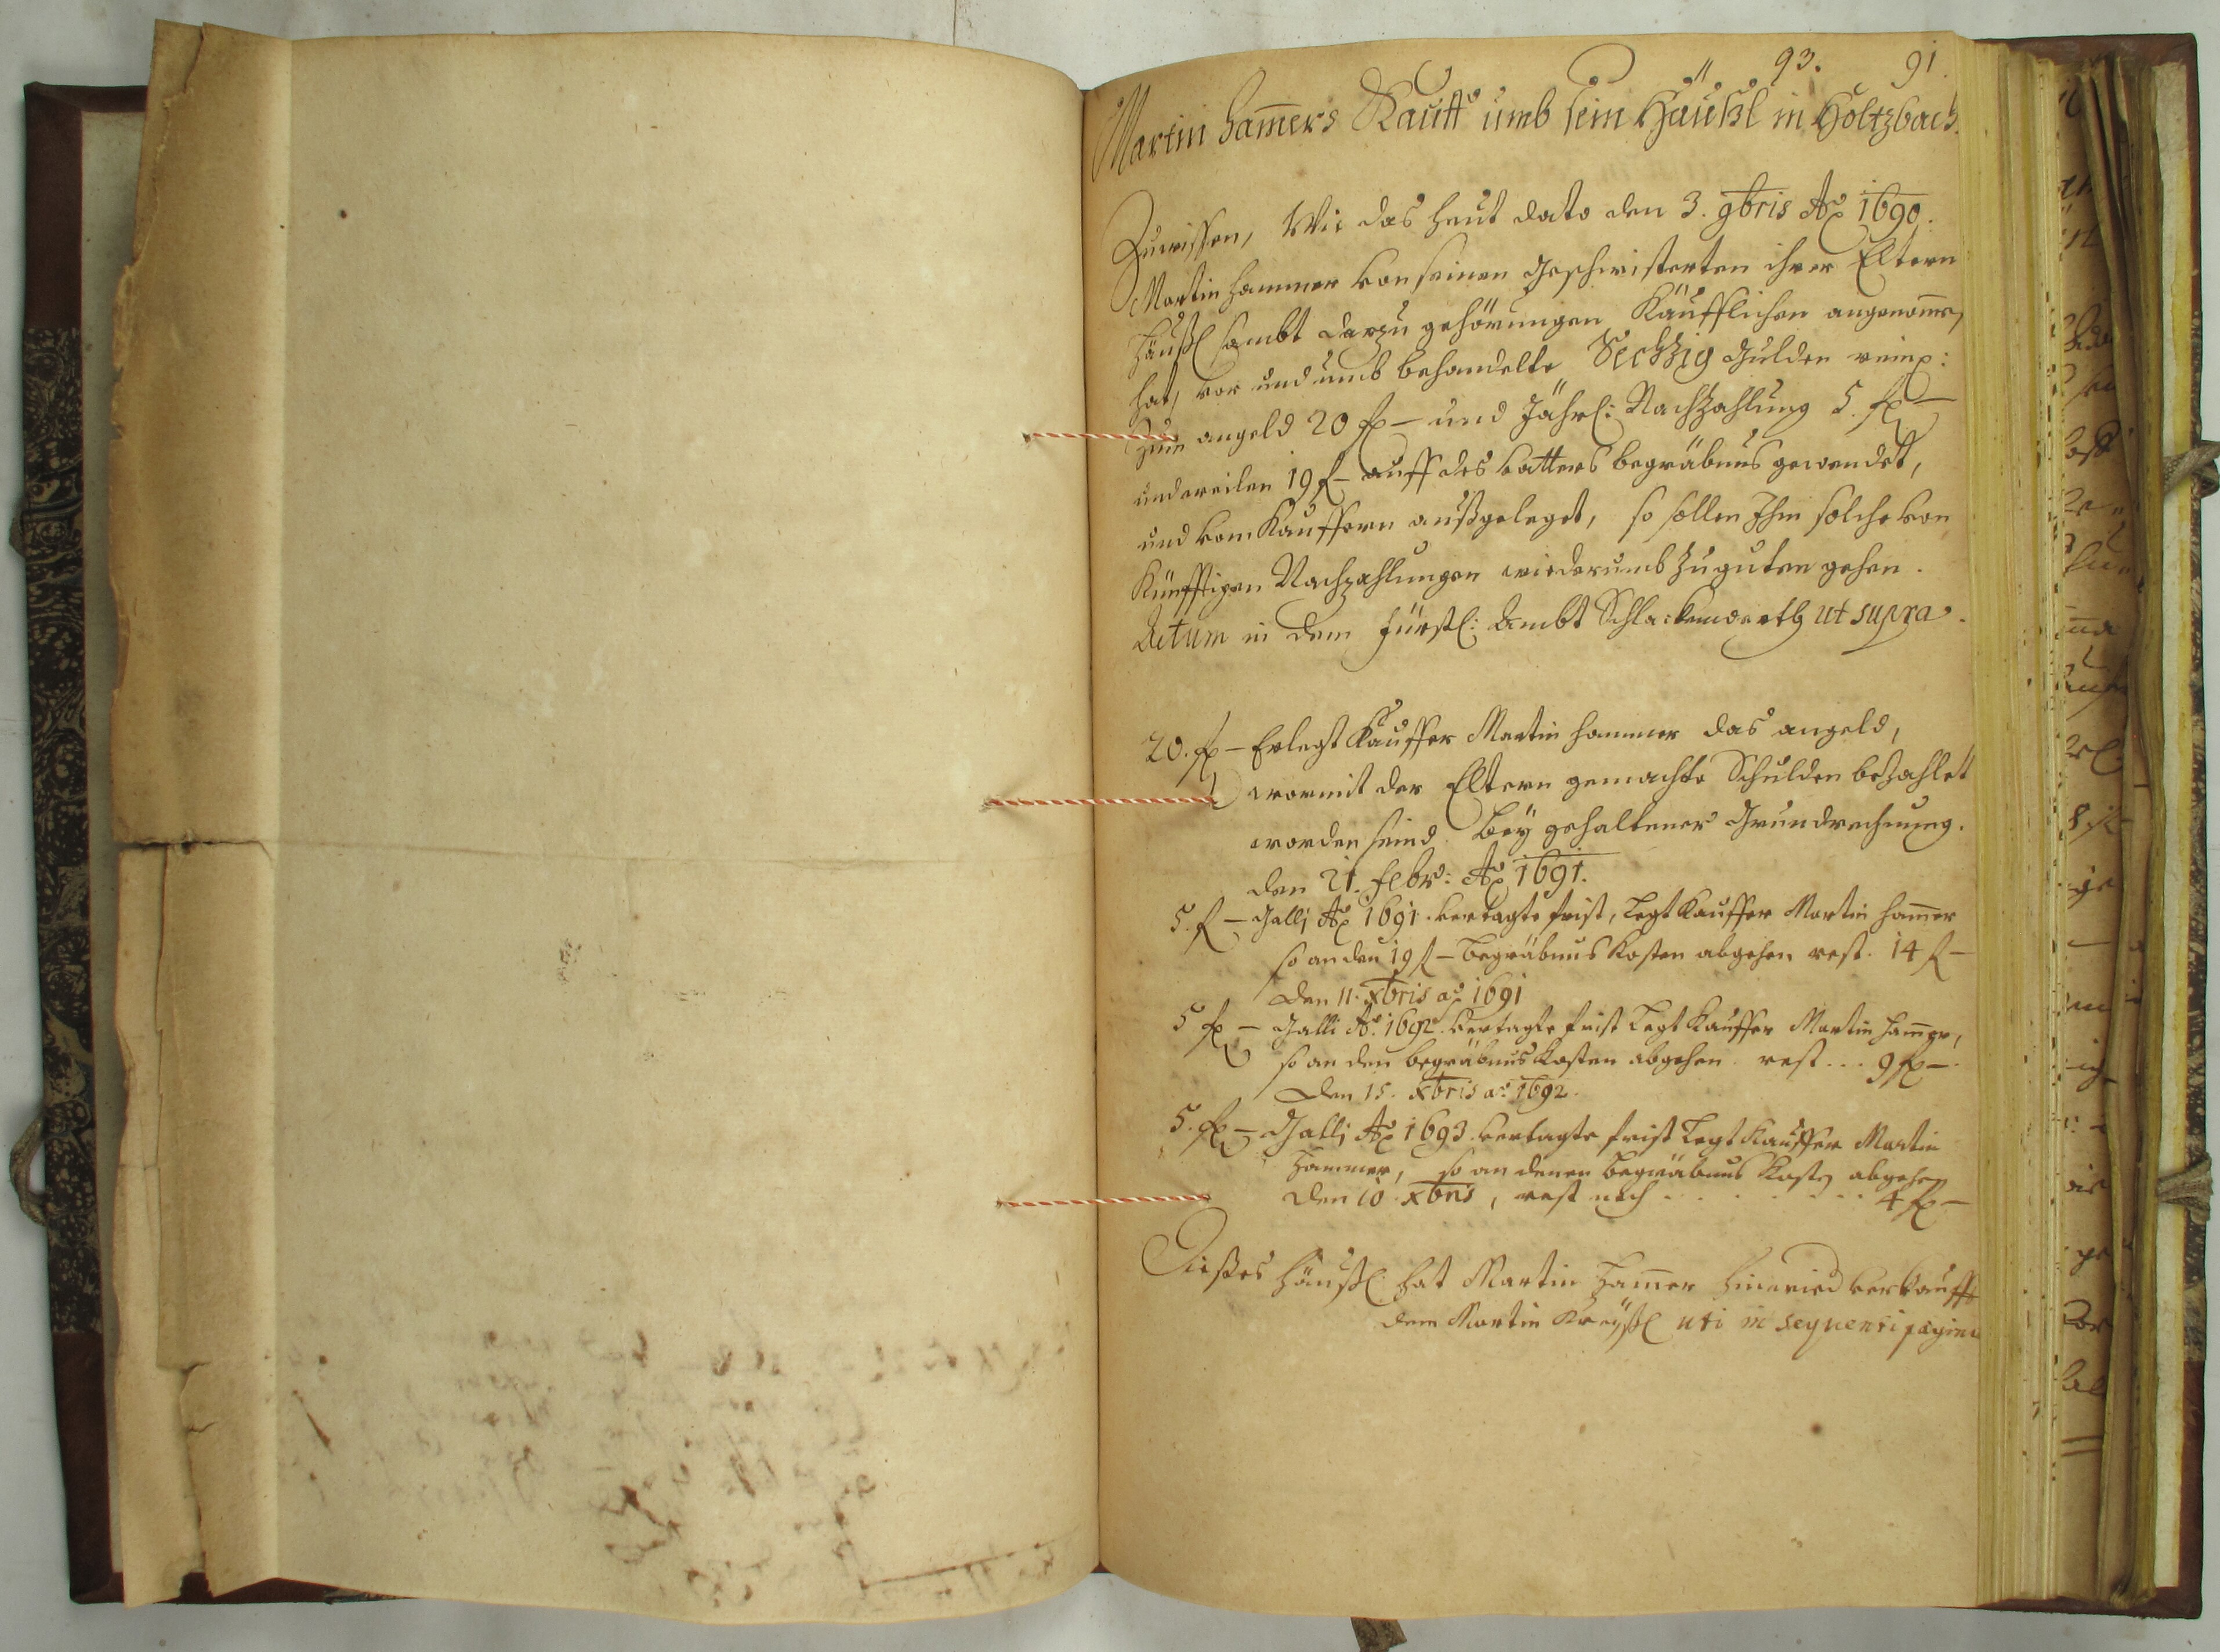 93. 91.
Martin Ham̅ers Kauff umb sein Häußl in Holtzbach.
Zuwissen, Wie das heut dato den 3. 9bris Ao 1690.
Martin Hammer von seinen Geschwisterten ihrer Eltern
Häußl sambt darzu gehörungen Käufflichen angenom̅en
hat, vor und umb behandelte Sechzig Gulden reinl:
Zum angeld 20 fl – und Jährl: Nachzahlung 5. fl –
und weilen 19 fl – auff des Vatters begräbnus gewendet,
und vom Kauffern außgeleget, so sollen Ihm solche von
Künfftigen Nachzahlungen wiederumb zuguten gehen.
Actum in dem Fürstl: Ambt Schlackenwerth ut supra.
20. fl – Erlegt Kauffer Martin Hammer das angeld,
wormit der Eltern gemachte Schulden bezahlet
worden seind. Bey gehaltener Grundrechnung.
den 21. Febr: Ao 1691.
5. fl – Galli Ao 1691 vertagte frist, legt Kauffer Martin Ham̅er
so an den 19 fl – begräbnus Kosten abgehen rest. 14 fl –
den 11. Xbris ao 1691
5 fl – Galli Ao. 1692 vertagte frist legt Kauffer Martin Ham̅er,
so an den begräbnus Kosten abgehen rest... 9 fl –
den 15. Xbris ao: 1692.
5. fl – Galli Ao 1693 vertagte frist legt Kauffer Martin
Hammer, so an denen begräbnus Kosten abgehen
den 10 Xbris, rest noch . . . . . . . 4 fl –
Dießes Häußl hat Martin Ham̅er hinwied verkaufft
dem Martin Kreyßl uti in sequenti pagina